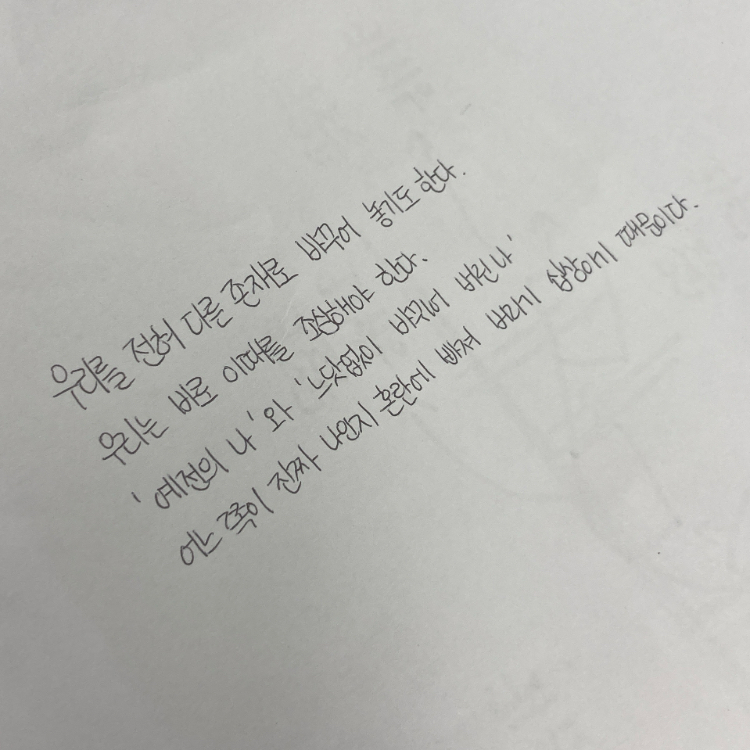 우리를 전혀 다른 존재로 바꾸어 놓기도 한다.
우리는 바로 이때를 조심해야 한다.
'예전의 나'와 '느닷없이 바뀌어 버린 나'
어느 쪽이 진짜 나인지 혼란에 빠져 버리기 십상이기 때문이다.